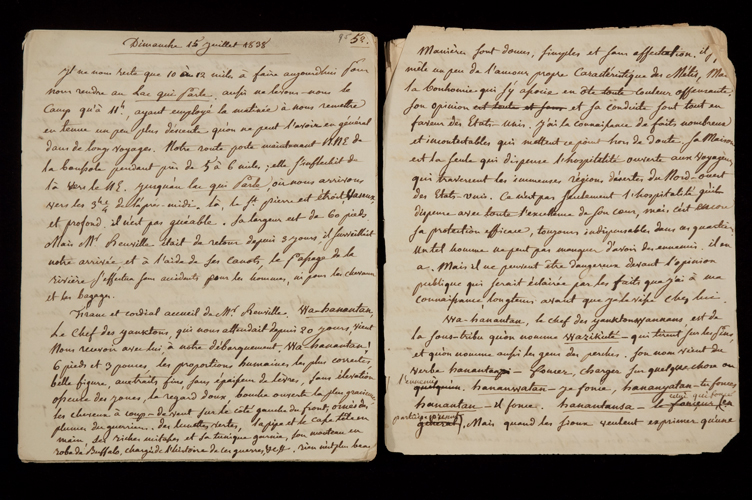 Dimanche 15 Juillet 1838
58.
Il ne nous reste que 10 à 12 mils à faire aujourdhui pour
nous rendre au Lac qui Parle, aussi ne levons-nous le
Camp qu'à 11h, ayant employé la matinée à nous remettre
en tenue un peu plus descente qu'on ne peut l'avoir en général
dans de longs voyages. Notre route porte maintenant NNE de
la boussole pendant près de 5 à 6 miles; elle s'infléchit de
là vers le NE. jusqu'au lac qui Parle, où nous arrivons
vers les 3h de l'après-midi. Là, le St. pierre est étroit
et profond, il n'est pas guéable. Sa largeur est de 60 pieds.
Mais Mr Renville était de retour depuis 3 jours, il surveillait
notre arrivée et à l'aide de ses Canots, le passage de la
rivière s'effectua sans accidents pour les hommes, ni pour les chevaux
et les bagages.
Franc et cordial accueil de Mr. Renville. Wa-hanantan,
Le Chef des yanktons, qui nous attendait depuis 20 jours, vient
Nous recevoir avec lui, à notre débarquement. Wa-hanantan!
6 pieds et 3 pouces, les proportions humaines les plus correctes,
belle figure, traits fins, sans épaisseur de lèvres, sans élévation
osseuse des joues, le regard doux, bouche ouverte la plus gracieuse,
les cheveux à coup-de-vent sur le côté gauche du front, ornés des
plumes du guerrier. des lunettes vertes, la pipe et le casse tête en
main, ses riches mitasses et sa tunique garnie, son manteau en
robe de Buffalo, chargé de l'histoire de ces guerres, &c. rien n'est plus beau
Manières sont douces, simples et sans affectation, il
mêle un peu de l'amour propre Caractéristique des Métis, Mais
la bonhomie qui s'y associe en ôte toute couleur offensante.
Son opinion est toute et sans et sa conduite sont tout en
faveur des Etats-Unis. J'ai la connaissance de faits nombreux
et incontestables qui mettent ce point hors de doute. Sa Maison
est la seule qui dispense l'hospitalité ouverte aux voyageurs
qui traversent les immenses régions désertes du Nord-ouest
des Etats-Unis. Ce n'est pas seulement l'hospitalité qu'il
dispense avec toute l'excellence de son cœur, mais c'est encore
sa protection efficace, toujours indispensable dans ces quartiers.
Un tel homme ne peut pas manquer d'avoir des ennemis, il en
a. Mais il ne peuvent être dangereux devant l'opinion
publique qui serait éclairée par les faits que j'ai à ma
connaissance, longtems avant que j'allasse chez lui.
Wa-hanantan, le chef des yanktonwannans, est de
la sous-tribu qu'on nomme Wazikuté - qui tirent sur les Pins,
et qu'on nomme aussi les gens des perches. Son nom vient du
verbe hanantan - foncer, charger sur quelque chose ou
l'ennemi
quelqu'un, hananwatan - je fonce, hananyatan - tu fonces,
celui qui fonce
hanantan - il fonce. hanantansa - le fonceur (en
participe
général). Mais quand les sioux veulent exprimer qu'une